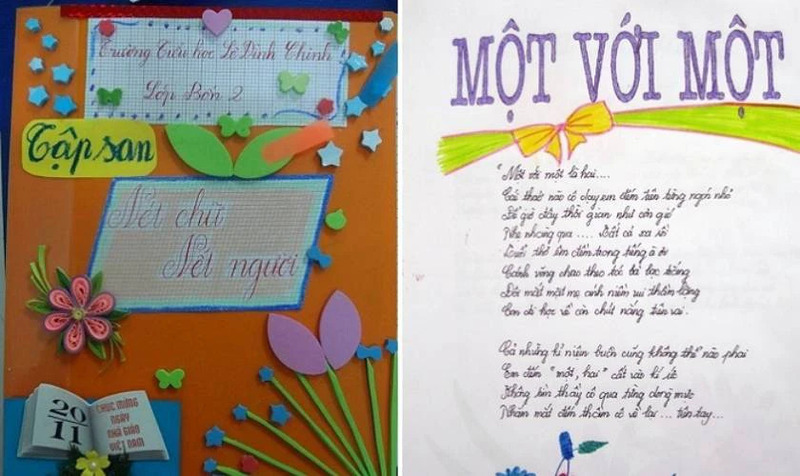 Trường Tiểu học Lê Đình Chinh
Lớp Bốn 2
Tập san
Nét chữ
Nết người
20
11
CHÚC MỪNG
NGÀY
NHÀ GIÁO
VIỆT NAM
MỘT VỚI MỘT
"Một với một là hai....
thuở nào cô dạy em đếm trên từng ngón nhỏ
Để giờ đây thời gian như cơn gió
Nhẹ nhàng qua ..... Bất cả xa xôi
thơ êm đềm trong tiếng à ơi
Cánh võng chao theo tóc bà bạc trắng
Đôi mắt mẹ ánh niềm vui thầm lặng
Con đi học về còn chút nắng trên vai.
Cả những kỉ niệm buồn cũng không thể nào phai
Em đếm "một, hai" cất vào kí ức
Không tìm thấy cô qua từng dòng mực
Nhắm mắt đếm thầm cô về lại ... trên tay...